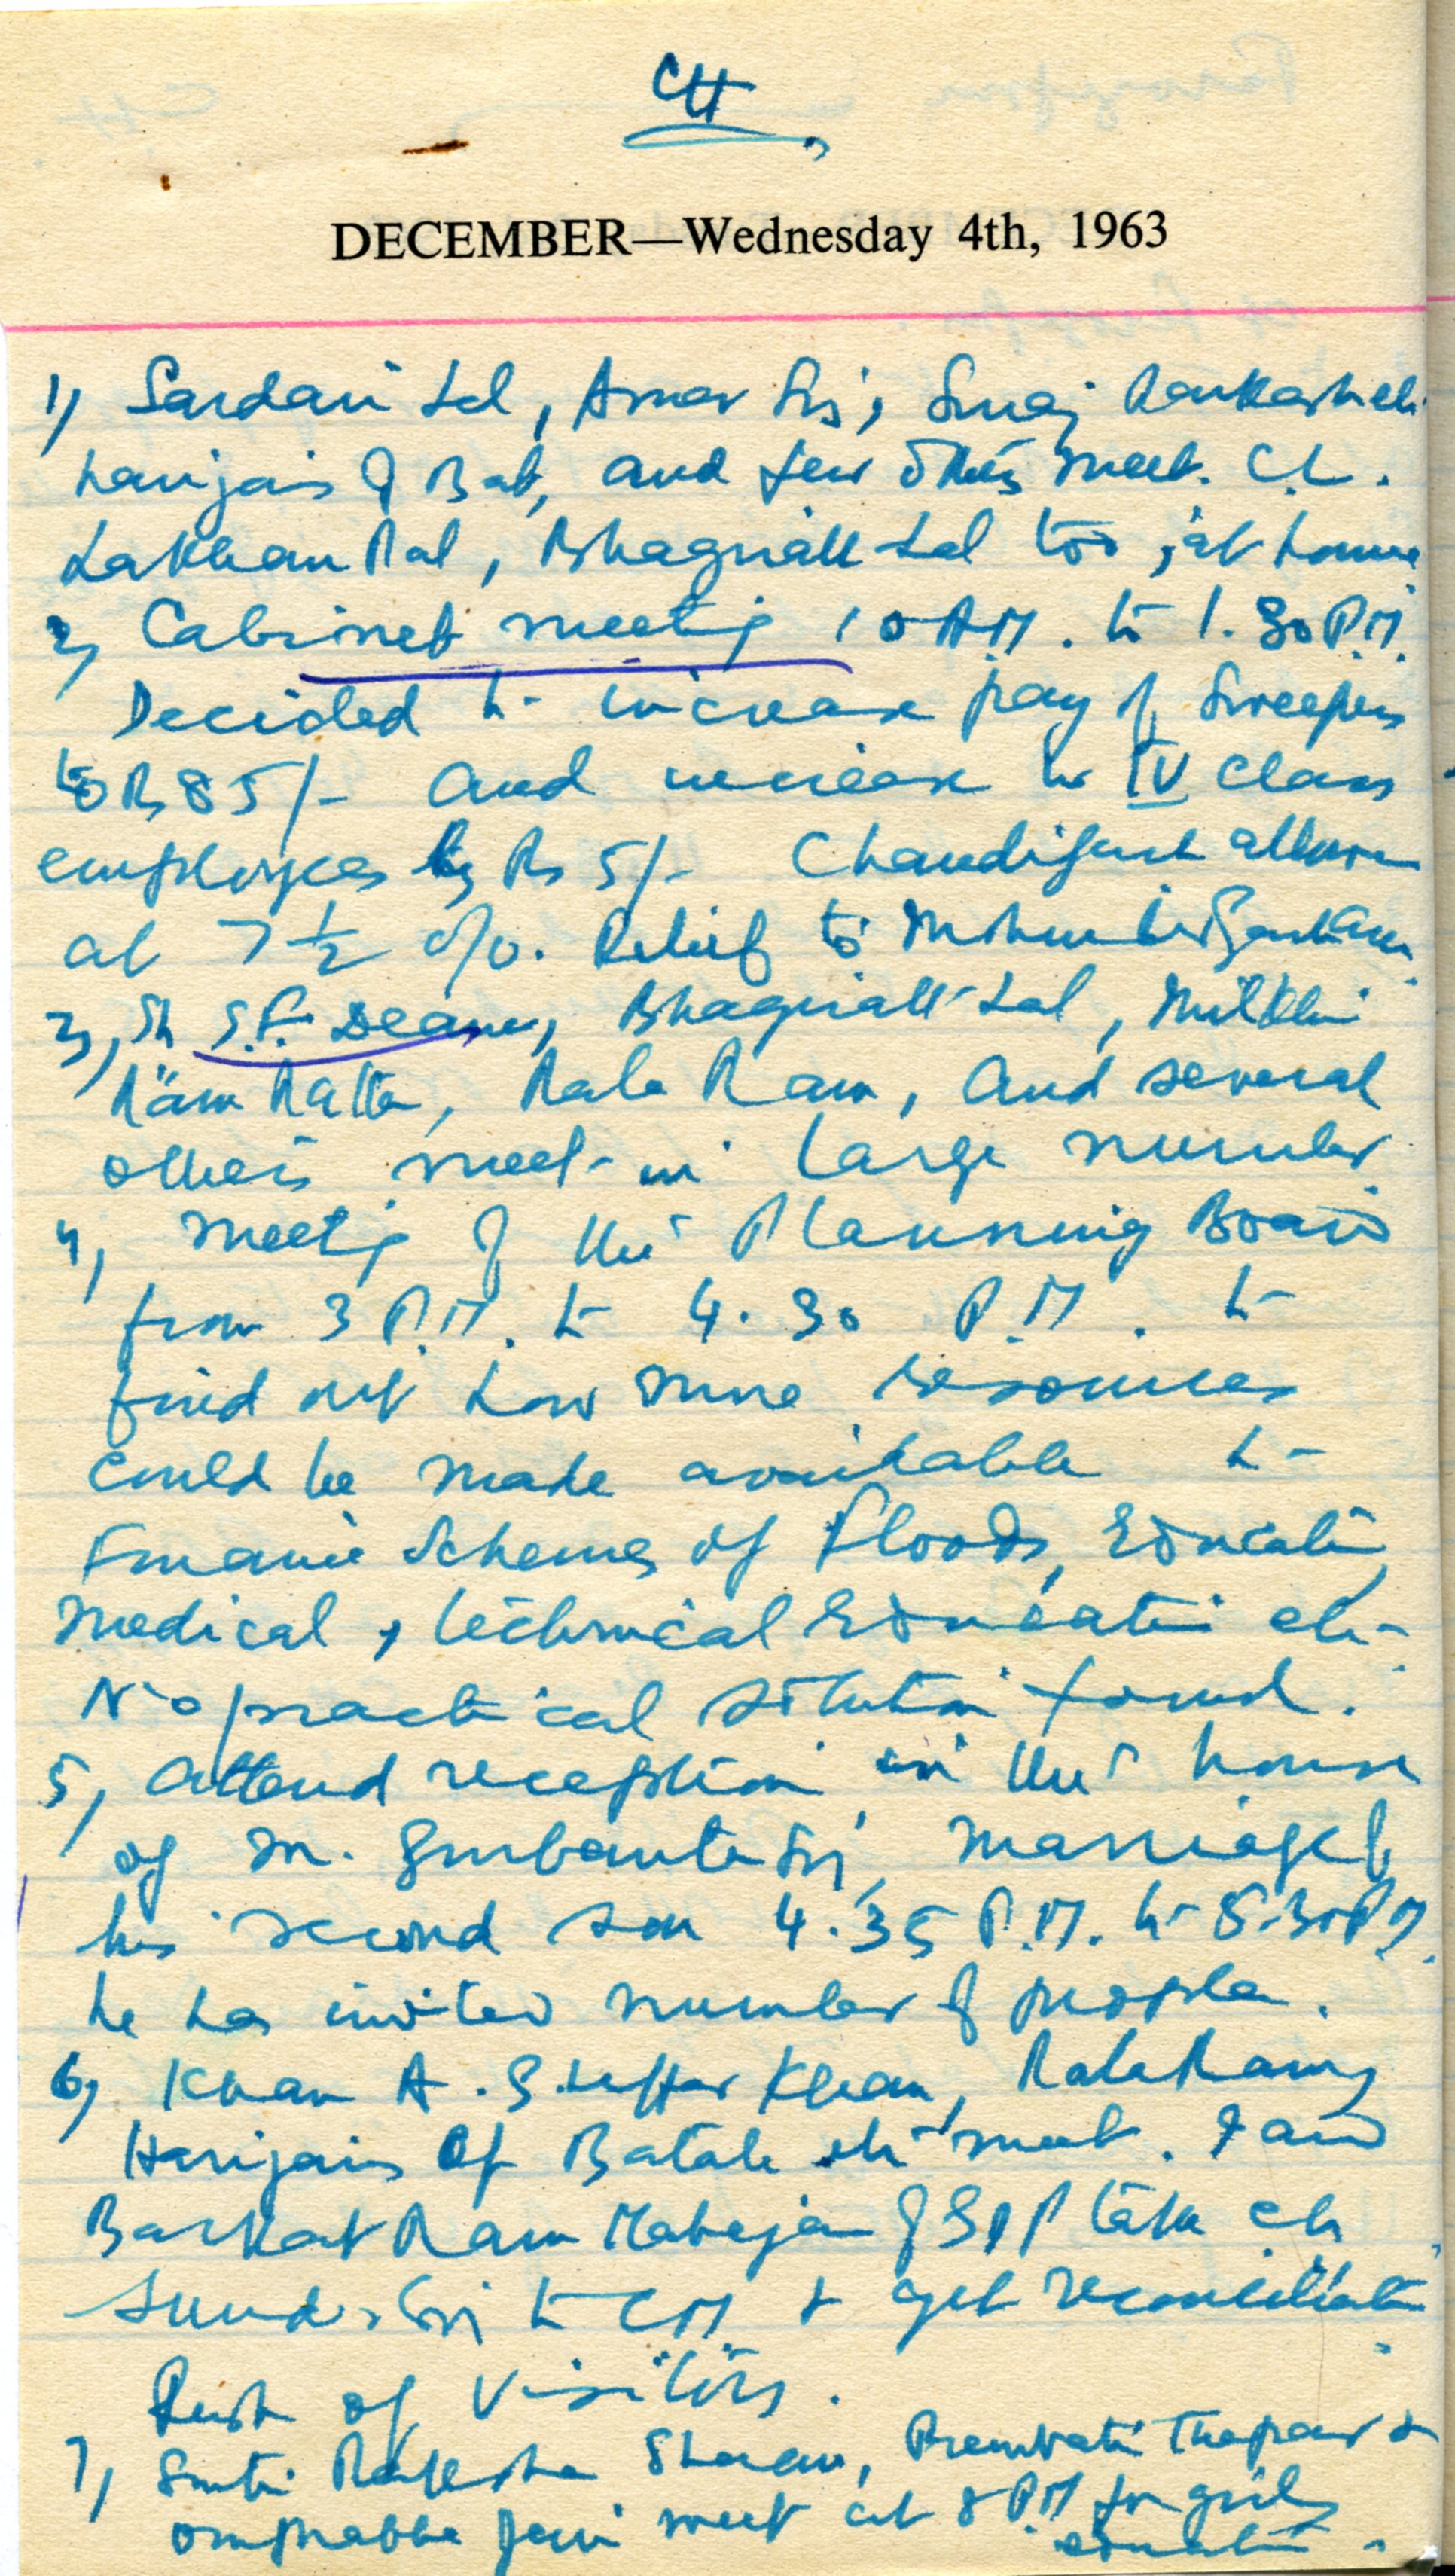 CH
DECEMBER—Wednesday 4th, 1963
1) Sardari Lal, Amar Sij, Suraj
harijans of Bat, and few others meet. C.L.
Lakhanpal, Bhagirath Lal too, at home
2) Cabinet meeting 10 A.M. to 1.30 P.M.
Decided to increase pay of Sweepers
to Rs 85/- and increase to IV class
employees by Rs 5/- Chandigarh
at 7½ %. Relief to
3) Sh Bhagirath Lal, Milkhi
Ram Ratta, Rala Ram, and several
others meet in large number
4) meeting of the Planning Board
from 3 P.M. to 4.30 P.M. to
find out how more resources
could be made available to
Finance Schemes of Floods, Education,
Medical, technical Education etc-
No practical solution found.
5) attend reception in the house
of M. Gurbanta Sij, marriage of
his second son 4.35 P.M. to 5.30 P.M.
he has invited number of people.
6) Khan A. Guffar Khan, Rala Ram,
Harijans of Batala etc meet. I and
Barkat Ram Mahajan of GSP take Ch
Sunder Sij to CM & get reconciliation
Rush of Visitors.
7) Smti Sharan, Thapar &
Omprabha Jain meet at 8 PM for girls
education.